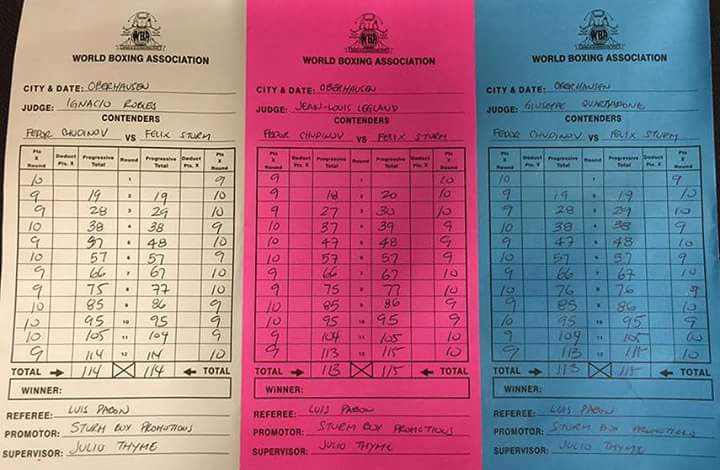 WBA
WORLD BOXING ASSOCIATION
CITY & DATE: OBERHAUSEN
JUDGE: IGNACIO ROBLES
CONTENDERS
FEDOR CHUDINOV VS FELIX STURM
Pts X Round Deduct Pts. X Progressive Total Round Progressive Total Deduct Pts. X Pts X Round
10 1 9
9 19 2 19 10
9 28 3 29 10
10 38 4 38 9
9 47 5 48 10
10 57 6 57 9
9 66 7 67 10
9 75 8 77 10
10 85 9 86 9
10 95 10 95 9
10 105 11 104 9
9 114 12 114 10
TOTAL 114 114 TOTAL
WINNER:
REFEREE: LUIS PABON
PROMOTOR: STURM BOX PROMOTIONS
SUPERVISOR: JULIO THYME
WBA
WORLD BOXING ASSOCIATION
CITY & DATE: OBERHAUSEN
JUDGE: JEAN-LOUIS LEGLAND
CONTENDERS
FEDOR CHUDINOV VS FELIX STURM
Pts X Round Deduct Pts. X Progressive Total Round Progressive Total Deduct Pts. X Pts X Round
9 1 10
9 18 2 20 10
9 27 3 30 10
10 37 4 39 9
10 47 5 48 9
10 57 6 57 9
9 66 7 67 10
9 75 8 77 10
10 85 9 86 9
10 95 10 95 9
9 104 11 105 10
9 113 12 115 10
TOTAL 113 115 TOTAL
WINNER:
REFEREE: LUIS PABON
PROMOTOR: STURM BOX PROMOTIONS
SUPERVISOR: JULIO THYME
WBA
WORLD BOXING ASSOCIATION
CITY & DATE: OBERHAUSEN
JUDGE: GIUSEPPE QUARTARONE
CONTENDERS
FEDOR CHUDINOV VS FELIX STURM
Pts X Round Deduct Pts. X Progressive Total Round Progressive Total Deduct Pts. X Pts X Round
10 1 9
9 19 2 19 10
9 28 3 29 10
10 38 4 38 9
9 47 5 48 10
10 57 6 57 9
9 66 7 67 10
10 76 8 76 9
9 85 9 86 10
10 95 10 95 9
9 104 11 105 10
9 113 12 115 10
TOTAL 113 115 TOTAL
WINNER:
REFEREE: LUIS PABON
PROMOTOR: STURM BOX PROMOTIONS
SUPERVISOR: JULIO THYME